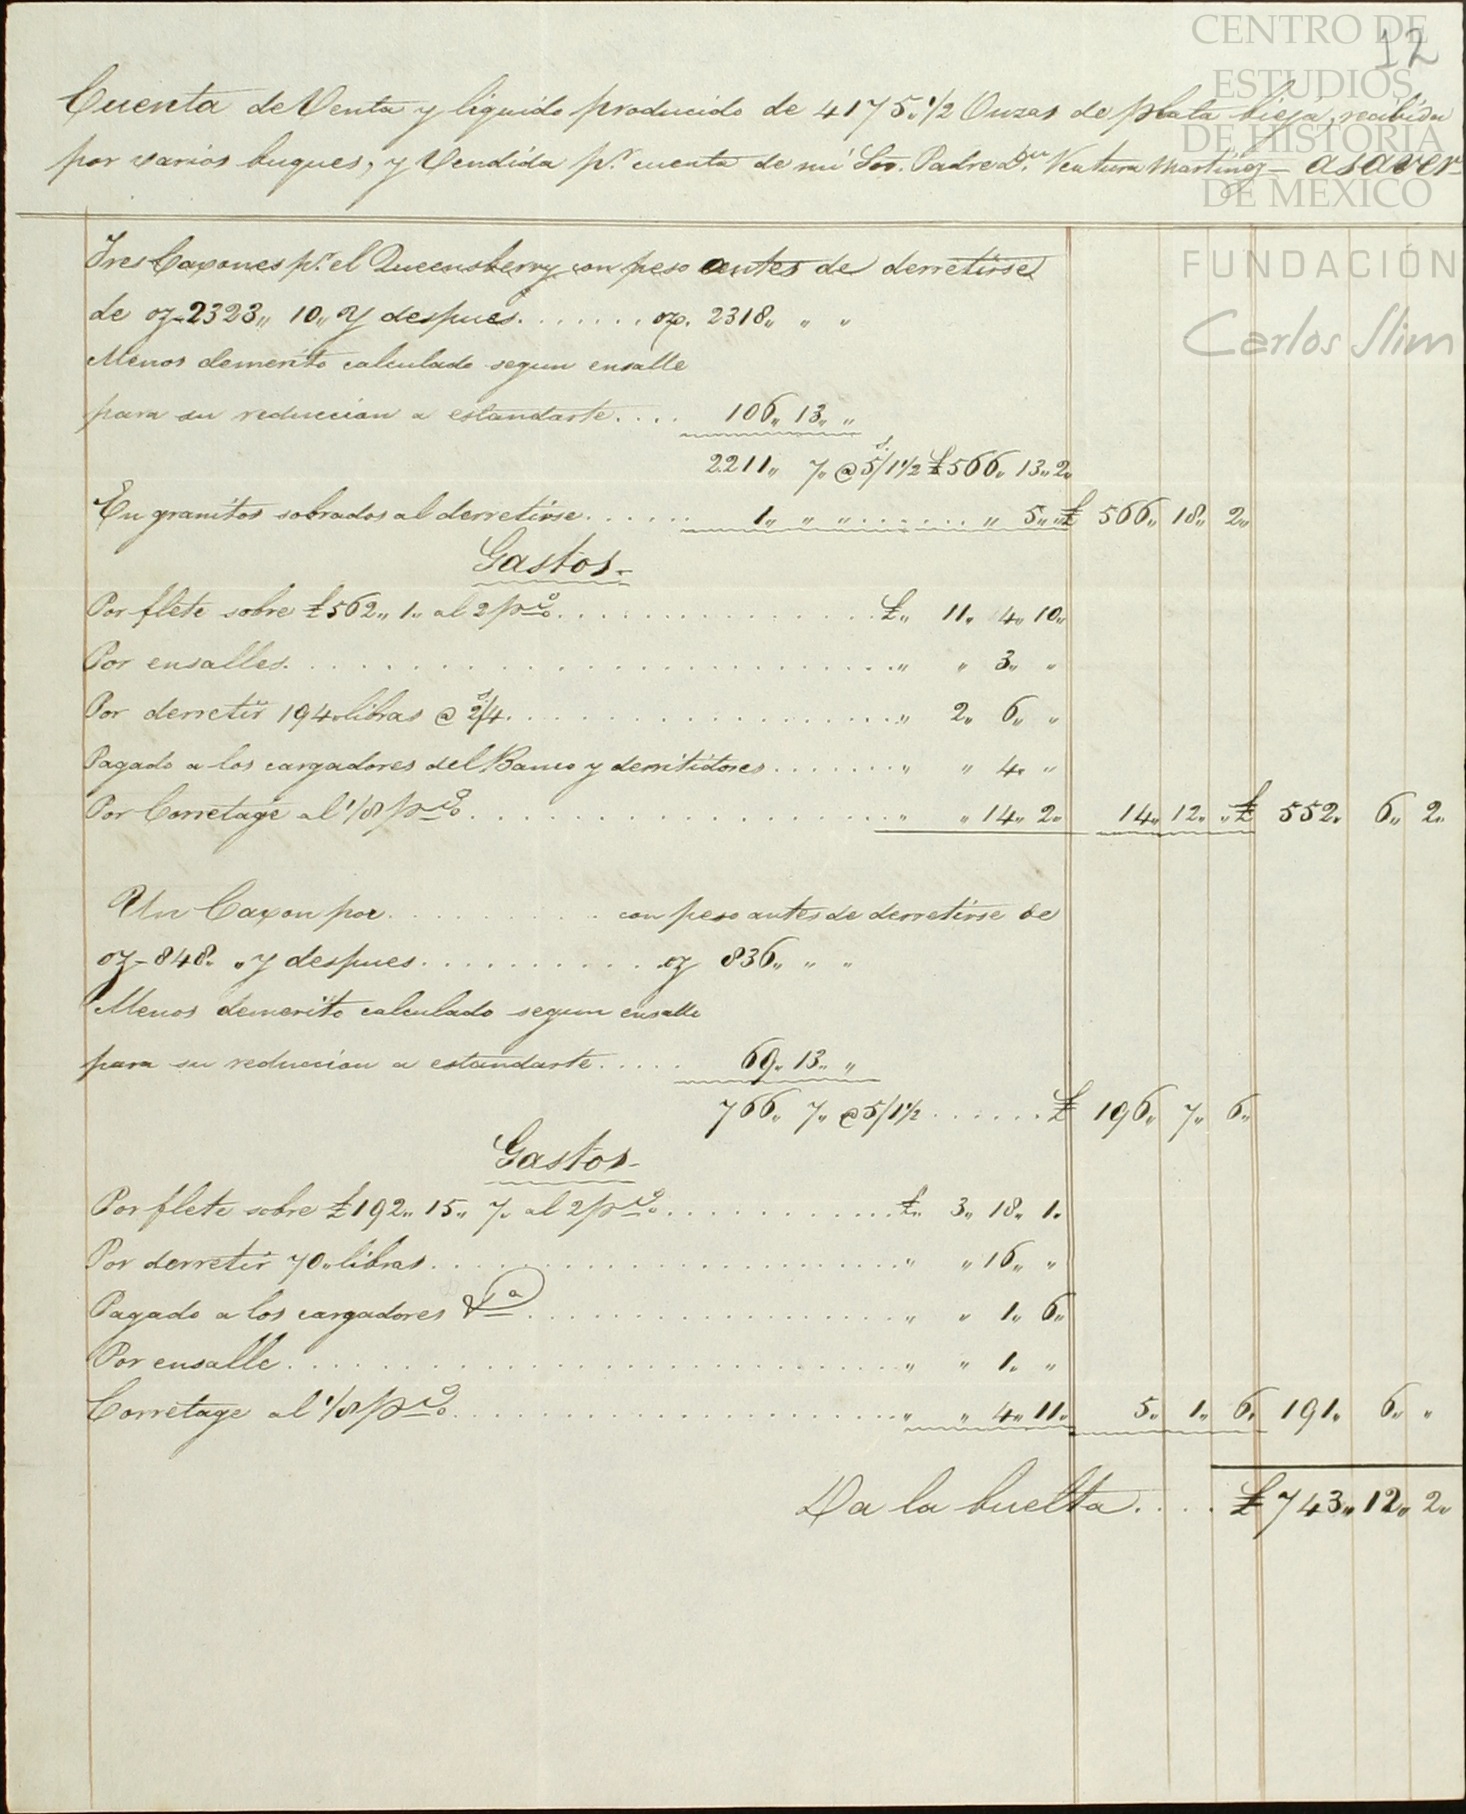 CENTRO DE
ESTUDIOS
DE HISTORIA
DE MEXICO
FUNDACIÓN
Carlos Slim
12
Cuenta de Venta y liquido producido de 4175„ 1/2 Onzas de plata bieja, recibida
por varios buques, y Vendida pr. cuenta de mi Sor. Padre Dn. Ventura Martinez — asaver —
Tres Caxones pr. el Queensberry con peso antes de derretirse
de oz-2323„ 10„ y despues....... oz. 2318„ „ „
Menos demerito calculado segun ensalle
para su reduccion a estandarte.... 106„ 13„ „
2211„ 7„ @ 5/1 1/2 £566„ 13„ 2„
En granitos sobrados al derretirse...... 1„ „ „....... „ 5„ „ £ 566„ 18„ 2„
Gastos.
Por flete sobre £562„ 1„ al 2 p%............... £„ 11„ 4„ 10„
Por ensalles............................ „ „ 3„ „
Por derretir 194„ libras @ s. 2/4................... „ 2„ 6„ „
Pagado a los cargadores del Banco y derritidores....... „ „ 4„ „
Por Corretage al 1/8 p%..................... „ „ 14„ 2„ 14„ 12„ „ £ 552„ 6„ 2„
Un Caxon por........... con peso antes de derretirse de
oz-848„ „ y despues........... oz 836„ „ „
Menos demerito calculado segun ensalle
para su reduccion a estandarte..... 69„ 13„ „
766„ 7„ @ 5/1 1/2....... £ 196„ 7„ 6„
Gastos.
Por flete sobre £192„ 15„ 7„ al 2 p%............ £„ 3„ 18„ 1„
Por derretir 70„ libras........................ „ „ 16„ „
Pagado a los cargadores &a................... „ „ 1„ 6„
Por ensalle............................ „ „ 1„ „
Corretage al 1/8 p%....................... „ „ 4„ 11„ 5„ 1„ 6„ 191„ 6„ „
Da la buelta.... £743„ 12„ 2„